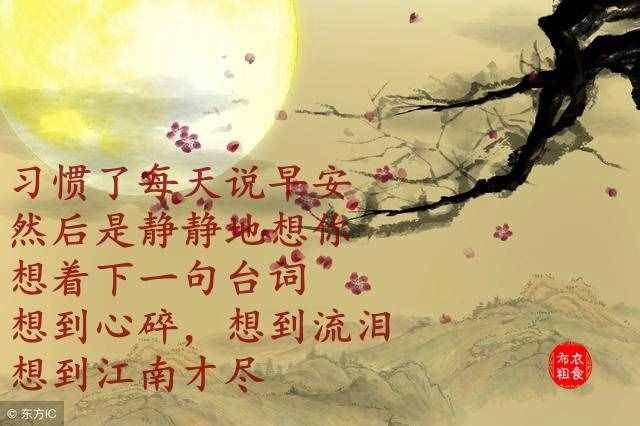 习惯了每天说早安
然后是静静地想你
想着下一句台词
想到心碎，想到流泪
想到江南才尽
布衣
粗食
© 东方IC